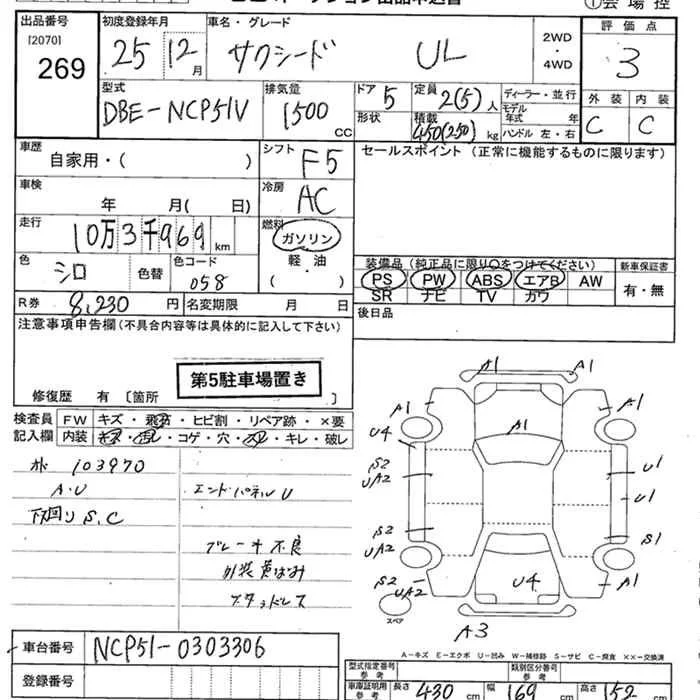 ①会場控
出品番号 [2070] 269
初度登録年月 25 12月
車名・グレード サクシード UL
2WD・4WD
評価点 3
型式 DBE-NCP51V
排気量 1500 CC
ドア 5
形状
定員 2(5)人
積載 450(250)kg
ディーラー・並行
モデル年式 年
ハンドル 左・右
外装 C
内装 C
車歴 自家用・( )
シフト F5
セールスポイント(正常に機能するものに限ります)
車検 年 月( 日)
冷房 AC
走行 10万3千969km
燃料 ガソリン
軽・油
( )
色 シロ 色替
色コード 058
装備品(純正品に限り○をつけてください)
PS PW ABS エアB AW
SR ナビ TV カワ
新車保証書 有・無
R券 8,230円
名変期限 月 日
後日品
注意事項申告欄(不具合内容等は具体的に記入して下さい)
第5駐車場置き
修復歴 有 [箇所 ]
検査員記入欄
FW キズ・飛石・ヒビ割・リペア跡・×要
内装 キズ・汚レ・コゲ・穴・スレ・キレ・破レ
103970
A.U
下回りS.C
エンドパネルU
ブレーキ不良
外装黄ばみ
スタッドレス
A1 A1
A1 A1 A1
U4
S2
UA2 U1
U1
S2 S1
UA2
S2
UA2 U4 A1
スペア
A3
A-キズ E-エクボ U-凹み W-補修跡 S-サビ C-腐食 ××-交換済
車台番号 NCP51-0303306
登録番号
型式指定番号 参考
類別区分番号 参考
車庫証明用 参考 長さ 430cm 幅 169cm 高さ 152cm